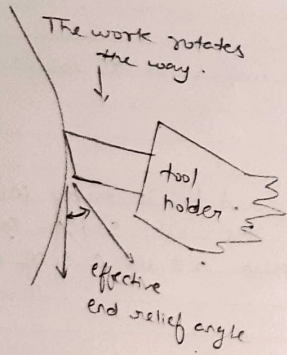 The work rotates
the way.
tool
holder.
effective
end relief angle